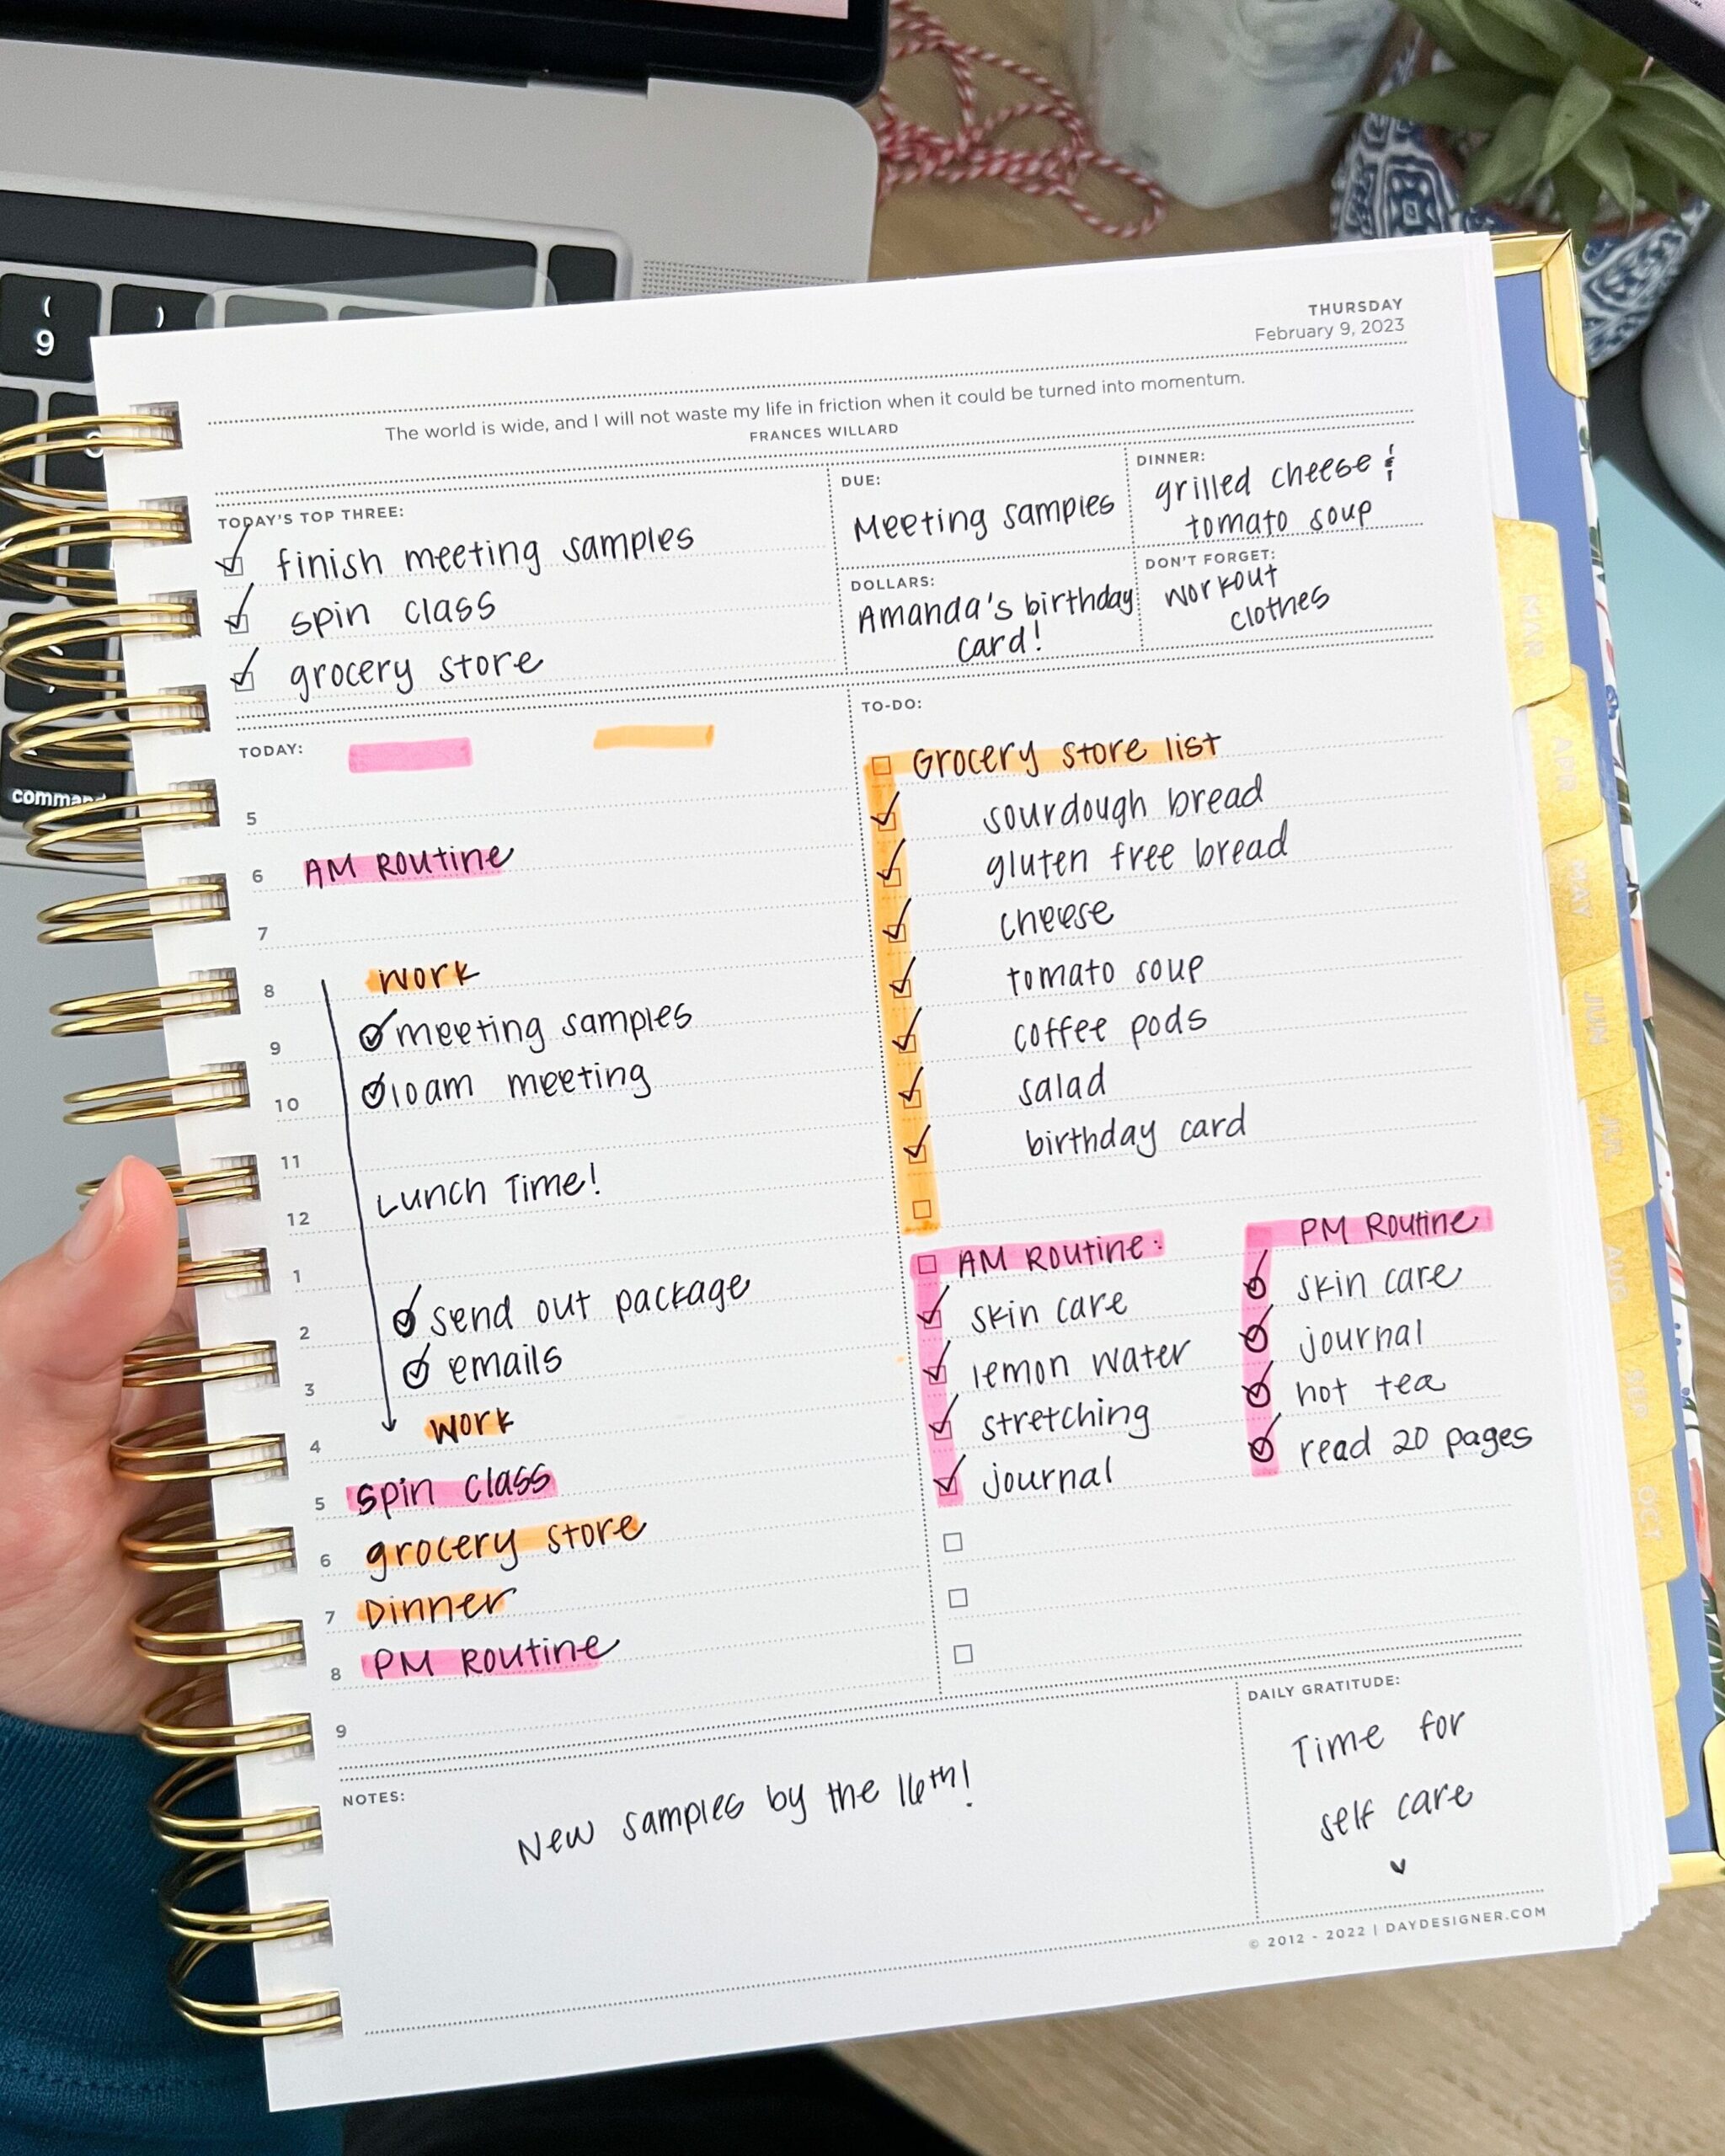 (
9
)
command
THURSDAY
February 9, 2023
The world is wide, and I will not waste my life in friction when it could be turned into momentum.
FRANCES WILLARD
TODAY'S TOP THREE:
finish meeting samples
spin class
grocery store
DUE:
Meeting samples
DINNER:
grilled cheese &
tomato soup
DOLLARS:
Amanda's birthday
card!
DON'T FORGET:
workout
clothes
TODAY:
5
6 AM Routine
7
8 work
9 meeting samples
10 10am meeting
11
12 Lunch Time!
1
2 send out package
3 emails
4 work
5 spin class
6 grocery store
7 Dinner
8 PM Routine
9
TO-DO:
Grocery store list
sourdough bread
gluten free bread
cheese
tomato soup
coffee pods
salad
birthday card
AM Routine:
skin care
lemon water
stretching
journal
PM Routine
skin care
journal
hot tea
read 20 pages
NOTES:
New samples by the 16th!
DAILY GRATITUDE:
Time for
self care
© 2012 - 2022 | DAYDESIGNER.COM
MAR
APR
MAY
JUN
JUL
AUG
SEP
OCT